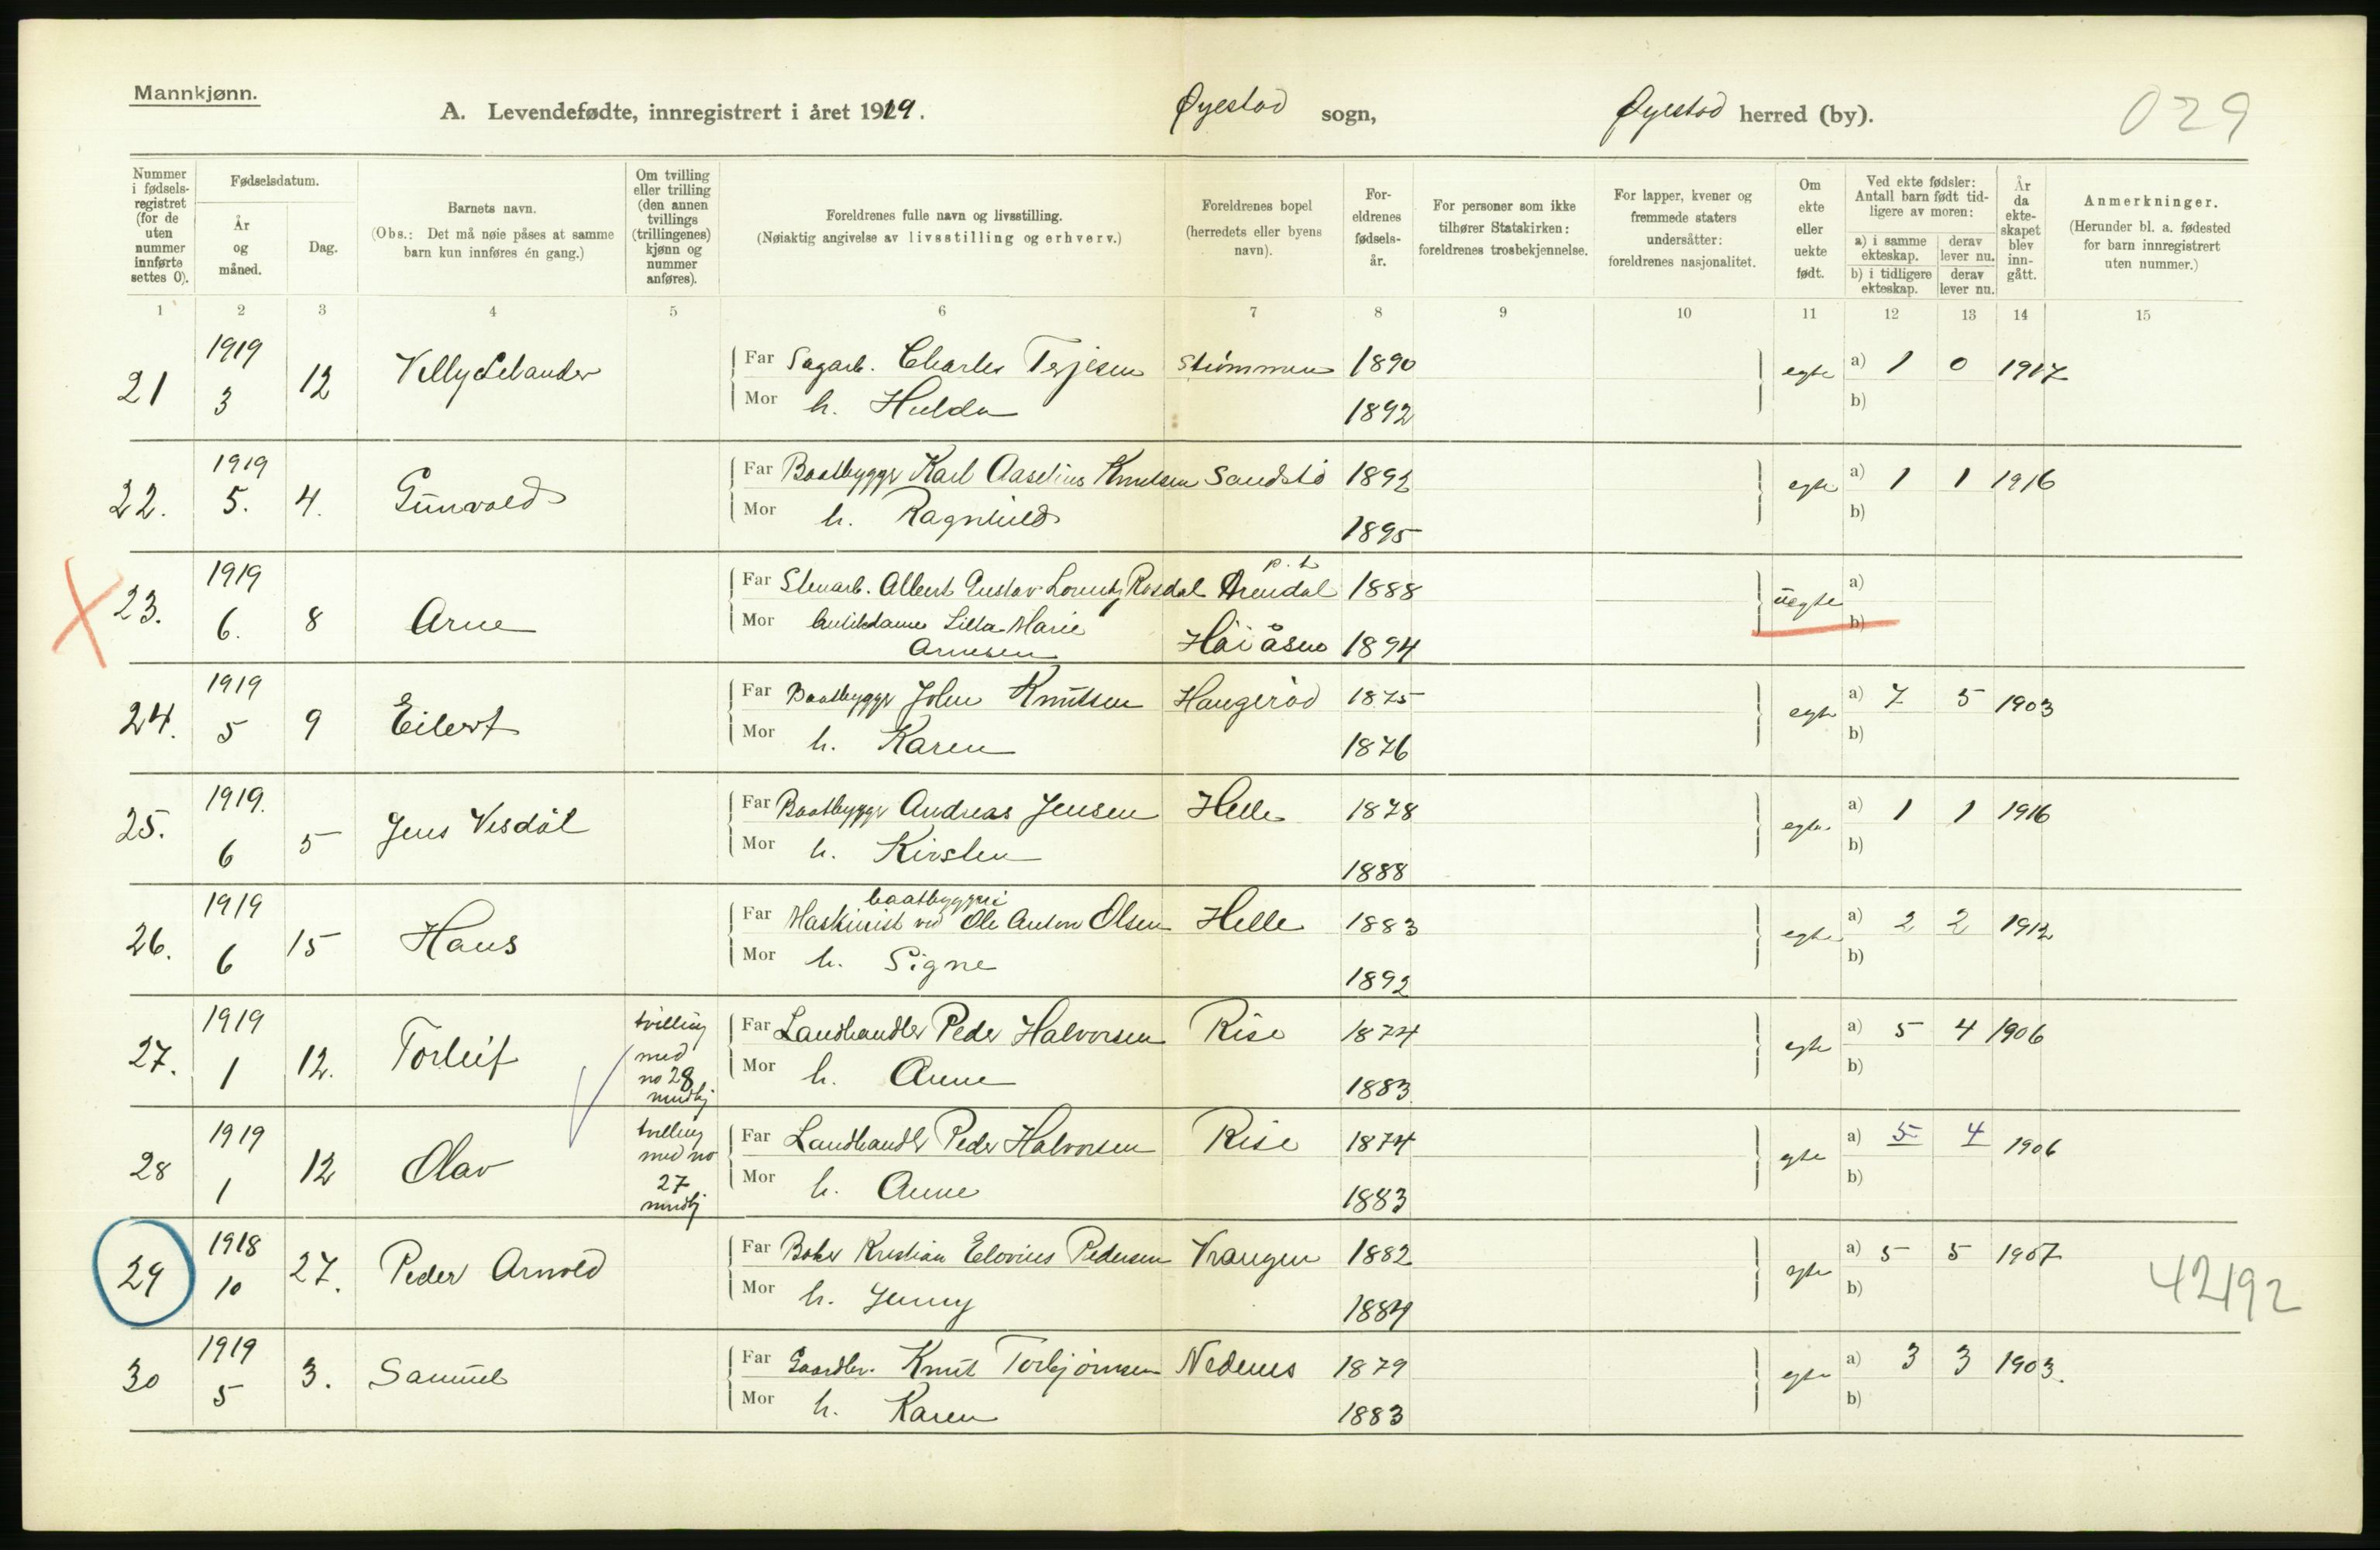 Mannkjønn.
A. Levendefødte, innregistrert i året 1919. Øyestad sogn, Øyestad herred (by). 029
Nummer i fødselsregistret (for de uten nummer innførte settes 0).
Fødselsdatum.
År og måned.
Dag.
Barnets navn.
(Obs.: Det må nøie påses at samme barn kun innføres én gang.)
Om tvilling eller trilling (den annen tvillings (trillingenes) kjønn og nummer anføres).
Foreldrenes fulle navn og livsstilling.
(Nøiaktig angivelse av livsstilling og erhverv.)
Foreldrenes bopel (herredets eller byens navn).
Foreldrenes fødselsår.
For personer som ikke tilhører Statskirken: foreldrenes trosbekjennelse.
For lapper, kvener og fremmede staters undersåtter: foreldrenes nasjonalitet.
Om ekte eller uekte født.
Ved ekte fødsler: Antall barn født tidligere av moren:
a) i samme ekteskap. derav lever nu.
b) i tidligere ekteskap. derav lever nu.
År da ekteskapet blev inngått.
Anmerkninger.
(Herunder bl. a. fødested for barn innregistrert uten nummer.)
1 2 3 4 5 6 7 8 9 10 11 12 13 14 15
21 1919 3 12 Far Sagarb. Charles Terjesen Strømmen 1890 egte a) 1 0 1917
Mor h. Hulda 1892 b)
22. 1919 5. 4. Gunvald Far Baatbygger Karl Aaselius Knutsen Sandstø 1892 egte a) 1 1 1916
Mor h. Ragnhild 1895 b)
23. 1919 6. 8 Arne Far Stenarb. Albert Gustav Lorentz Rosdal p.t. Arendal 1888 uegte a)
Mor Lilla Marie Arnesen Høiåsen 1894 b)
24. 1919 5 9 Eilert Far Baatbygger John Knutsen Haugerød 1875 egte a) 7 5 1903
Mor h. Karen 1876 b)
25. 1919. 6 5 Jens Visdal Far Baatbygger Andreas Jensen Helle 1878 egte. a) 1 1 1916
Mor h. Kirsten 1888 b)
26. 1919 6 15 Hans Far Maskinist ved baatbyggeri Ole Anton Olsen Helle 1883 egte a) 2 2 1912
Mor h. Signe 1892 b)
27. 1919 1 12. Torleif tvilling med no 28 Far Landhandler Peder Halvorsen Rise 1874 egte a) 5 4 1906
Mor h. Anne 1883 b)
28 1919 1 12 Olav tvilling med no 27 Far Landhandler Peder Halvorsen Rise 1874 egte a) 5 4 1906
Mor h. Anne 1883 b)
29 1918 10 27. Peder Arnold Far Kristian Elovius Pedersen Vrangen 1882 egte a) 5 5 1907 42192
Mor h. Jenny 1884 b)
30 1919 5 3. Samuel Far Gaardbr. Knut Torbjørnsen Nedenes 1879 egte a) 3 3 1903.
Mor h. Karen 1883 b)